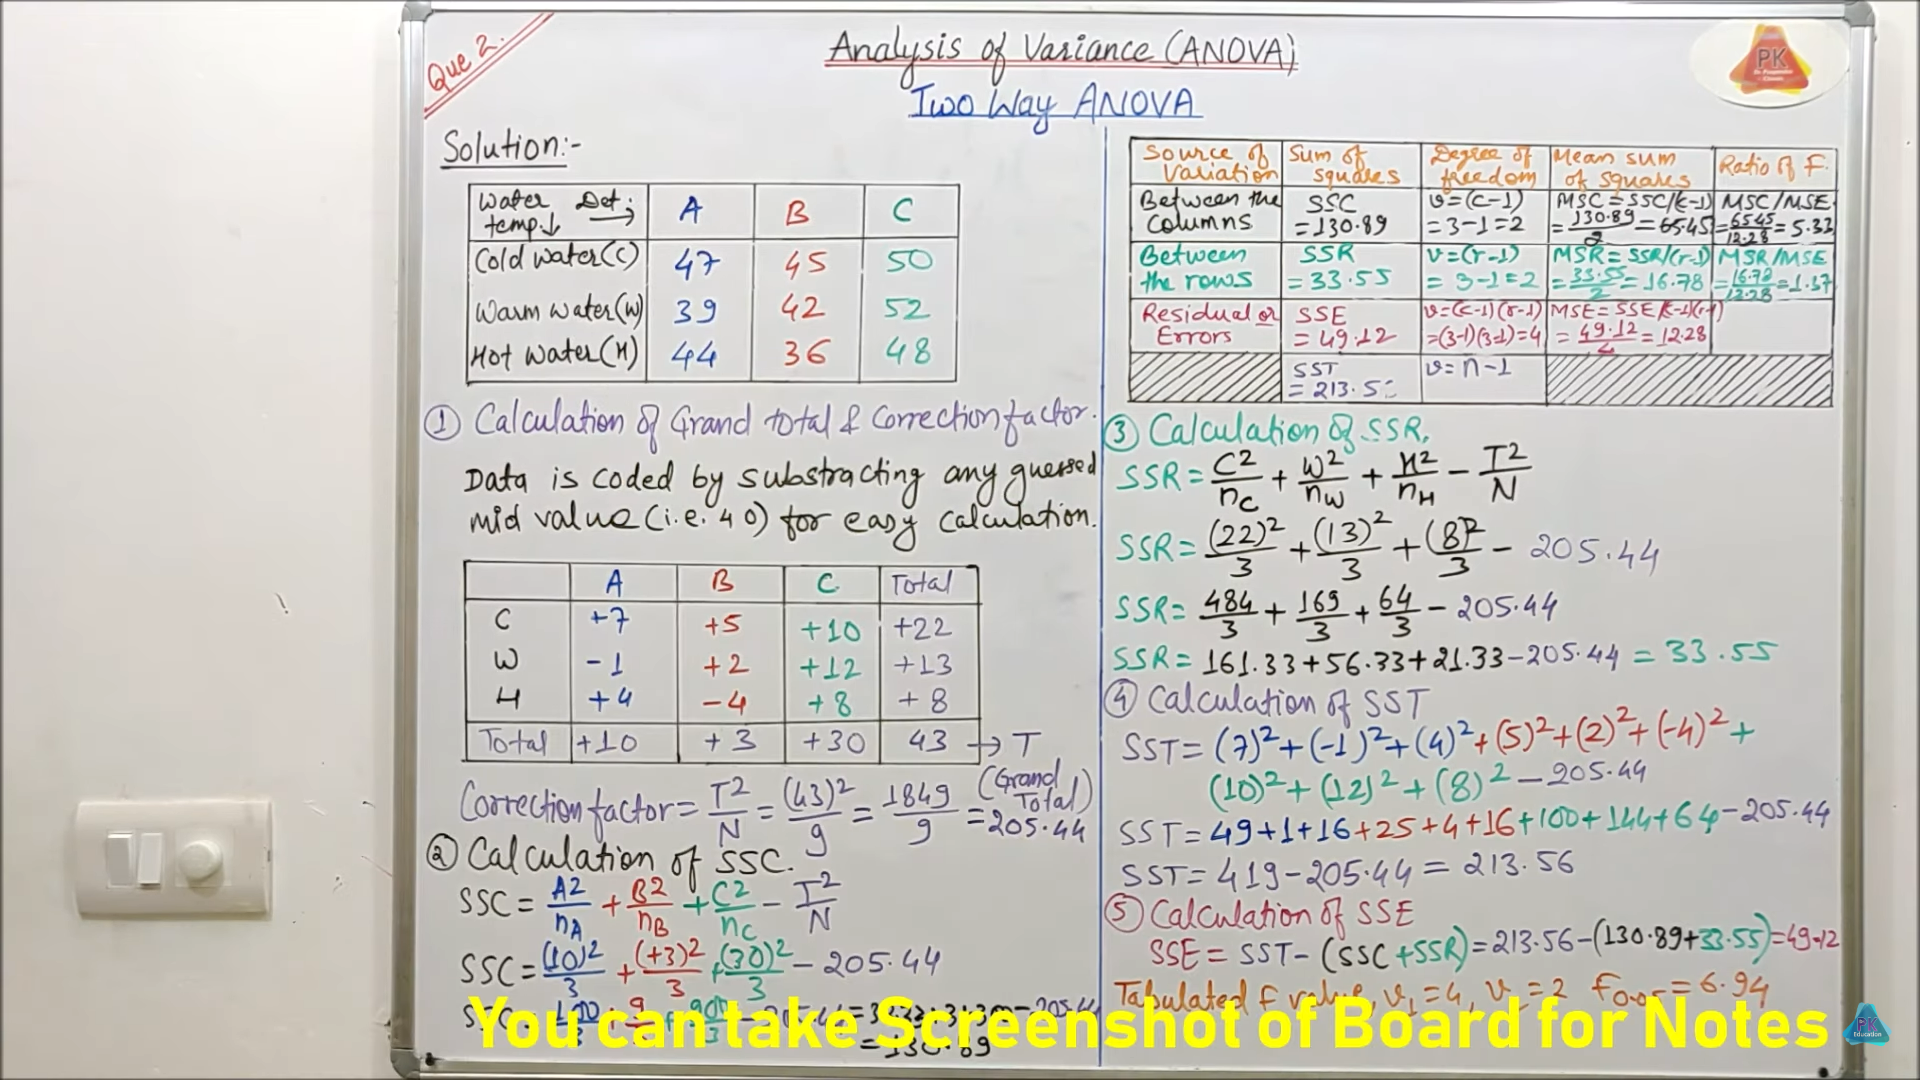 Que 2.
Analysis of Variance (ANOVA)
Two Way ANOVA
PK
Solution:-
Water temp.↓ Det. → A B C
Cold water(C) 47 45 50
Warm water(W) 39 42 52
Hot water(H) 44 36 48
① Calculation of Grand total & Correction factor.
Data is coded by substracting any guessed
mid value (i.e. 40) for easy calculation.
A B C Total
C +7 +5 +10 +22
W -1 +2 +12 +13
H +4 -4 +8 +8
Total +10 +3 +30 43 → T
(Grand Total)
Correction factor = T²/N = (43)²/9 = 1849/9 = 205.44
② Calculation of SSC.
SSC = A²/nA + B²/nB + C²/nC - T²/N
SSC = (10)²/3 + (+3)²/3 + (30)²/3 - 205.44
= 130.89
Source of Variation Sum of squares Degree of freedom Mean sum of squares Ratio of F.
Between the columns SSC = 130.89 v=(c-1) = 3-1=2 MSC = SSC/(k-1) = 130.89/2 = 65.45 MSC/MSE = 65.45/12.28 = 5.33
Between the rows SSR = 33.55 v=(r-1) = 3-1=2 MSR = SSR/(r-1) = 33.55/2 = 16.78 MSR/MSE = 16.78/12.28 = 1.37
Residual or Errors SSE = 49.12 v=(c-1)(r-1) =(3-1)(3-1)=4 MSE = SSE/(k-1)(r-1) = 49.12/4 = 12.28
SST = 213.5 v = n-1
③ Calculation of SSR.
SSR = C²/nC + W²/nW + H²/nH - T²/N
SSR = (22)²/3 + (13)²/3 + (8)²/3 - 205.44
SSR = 484/3 + 169/3 + 64/3 - 205.44
SSR = 161.33+56.33+21.33-205.44 = 33.55
④ Calculation of SST
SST = (7)²+(-1)²+(4)²+(5)²+(2)²+(-4)²+
(10)²+(12)²+(8)² - 205.44
SST = 49+1+16+25+4+16+100+144+64-205.44
SST = 419-205.44 = 213.56
⑤ Calculation of SSE
SSE = SST-(SSC+SSR)=213.56-(130.89+33.55)=49.12
Tabulated F value, v₁=4, v =2 F0.05 = 6.94
You can take Screenshot of Board for Notes
PK
Education